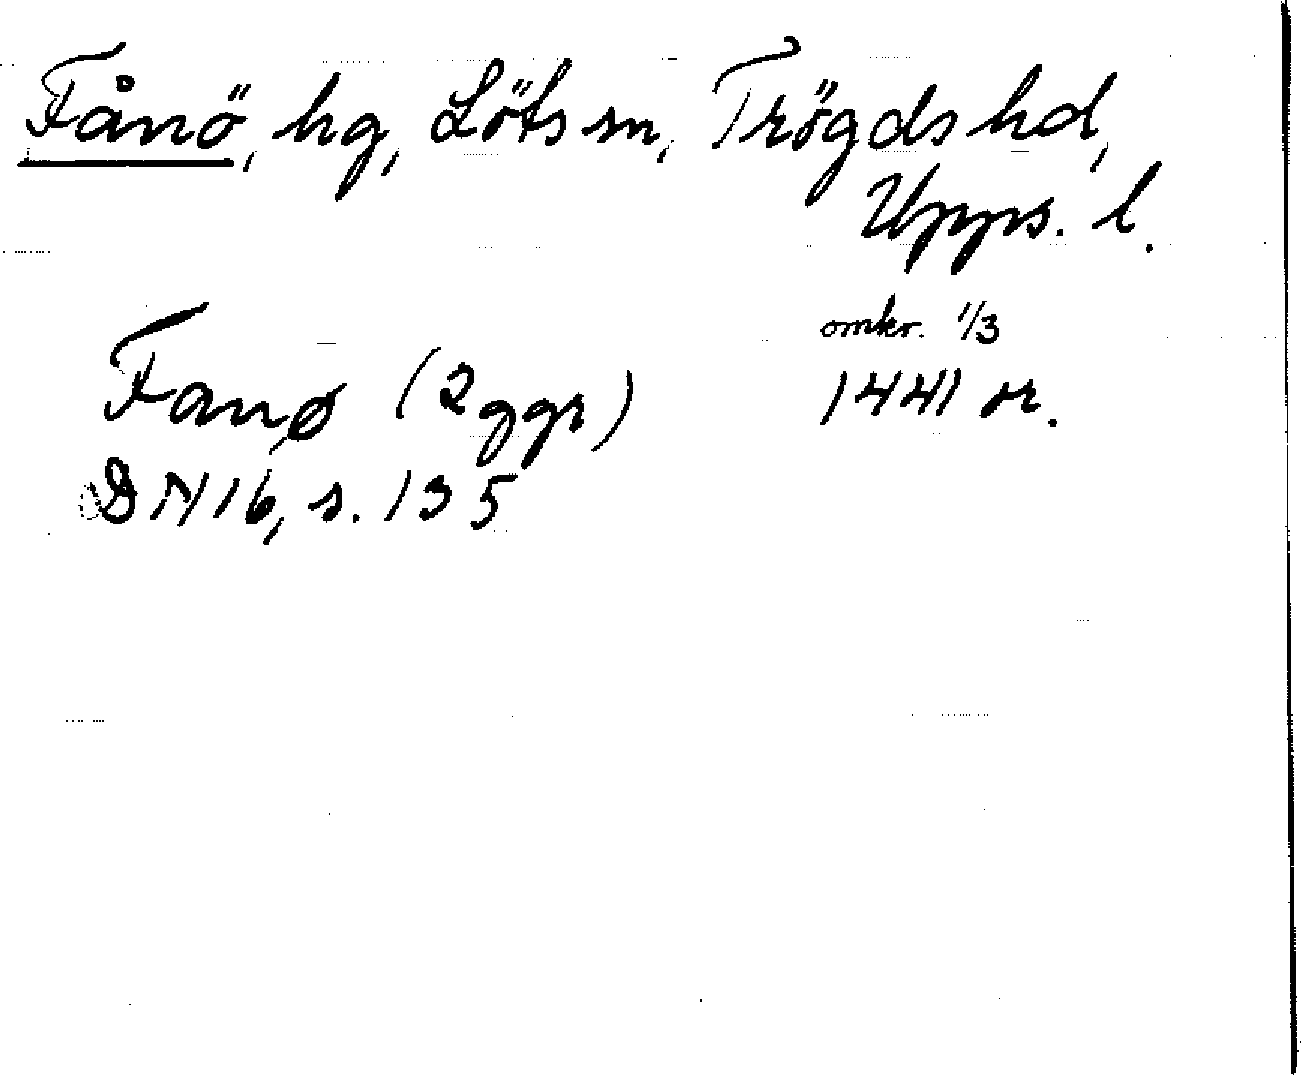 Fånö, hg, Löts sn, Trögds hd,
Upps. l.
omkr. 1/3
Fanø (2 ggr) 1441 or.
DN 16, s. 135